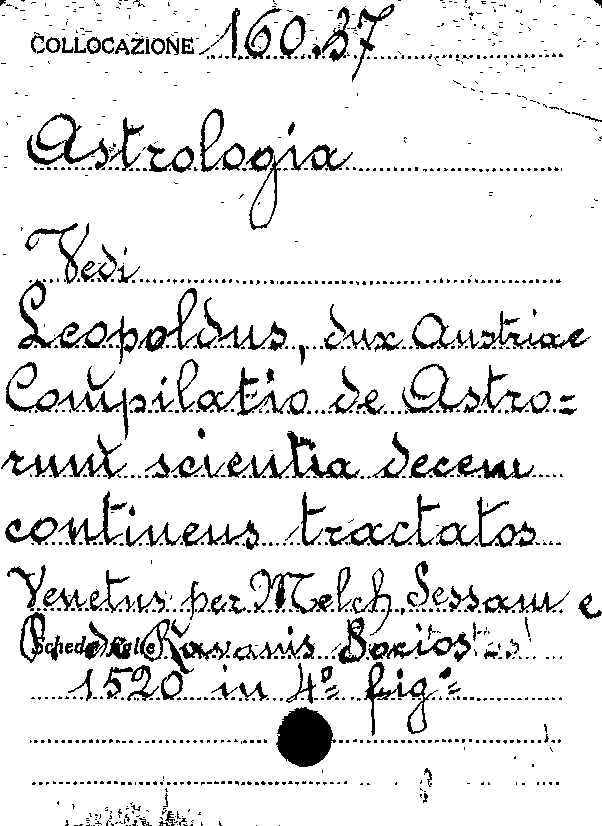 COLLOCAZIONE 160.37
Astrologia
Vedi
Leopoldus, dux Austriae
Compilatio de Astro=
rum scientia decem
continens tractatos
Venetus per Melch. Sessam e
de Ravanis Socios
1520 in 4º fig.